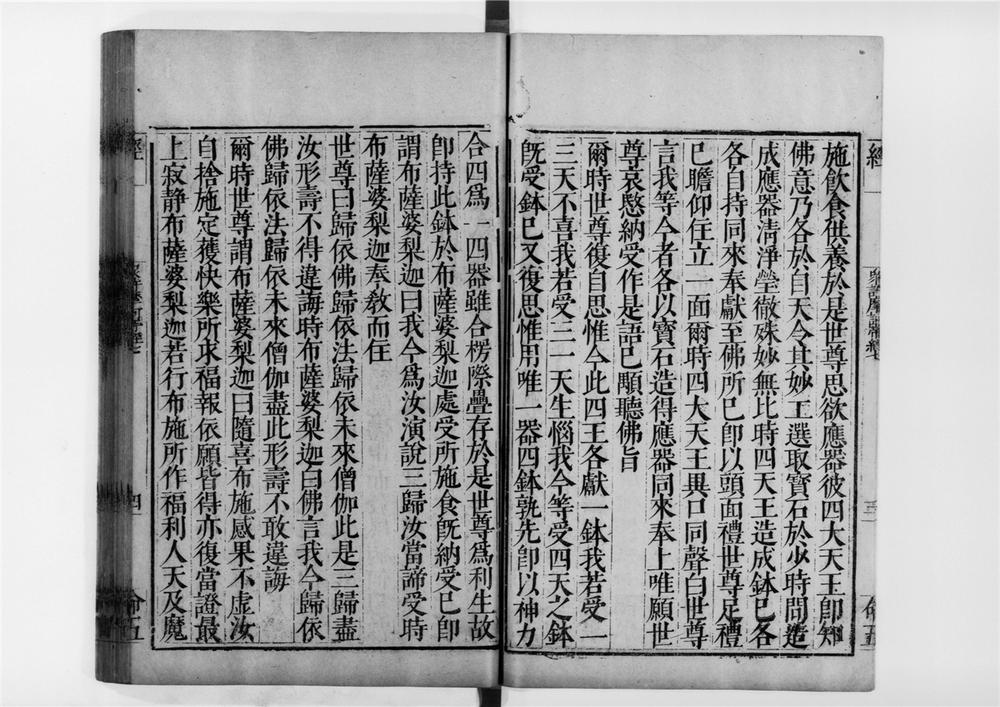 施飲食供養於是世尊思欲應器彼四大天王卽知
佛意乃各於自天令其妙工選取寶石於少時間造
成應器淸淨瑩徹殊妙無比時四天王造成鉢已各
各自持同來奉獻至佛所已卽以頭面禮世尊足禮
已瞻仰住立一面爾時四大天王異口同聲白世尊
言我等今者各以寶石造得應器同來奉上唯願世
尊哀愍納受作是語已顒聽佛旨
爾時世尊復自思惟今此四王各獻一鉢我若受一
三天不喜我若受三一天生惱我今等受四天之鉢
旣受鉢已又復思惟用唯一器四鉢孰先卽以神力
經
三
命五
合四爲一四器雖合楞際疊存於是世尊爲利生故
卽持此鉢於布薩婆梨迦處受所施食旣納受已卽
謂布薩婆梨迦曰我今爲汝演說三歸汝當諦受時
布薩婆梨迦奉敎而住
世尊曰歸依佛歸依法歸依未來僧伽此是三歸盡
汝形壽不得違誨時布薩婆梨迦白佛言我今歸依
佛歸依法歸依未來僧伽盡此形壽不敢違誨
爾時世尊謂布薩婆梨迦曰隨喜布施感果不虛汝
自捨施定獲快樂所求福報依願皆得亦復當證最
上寂靜布薩婆梨迦若行布施所作福利人天及魔
經
四
命五